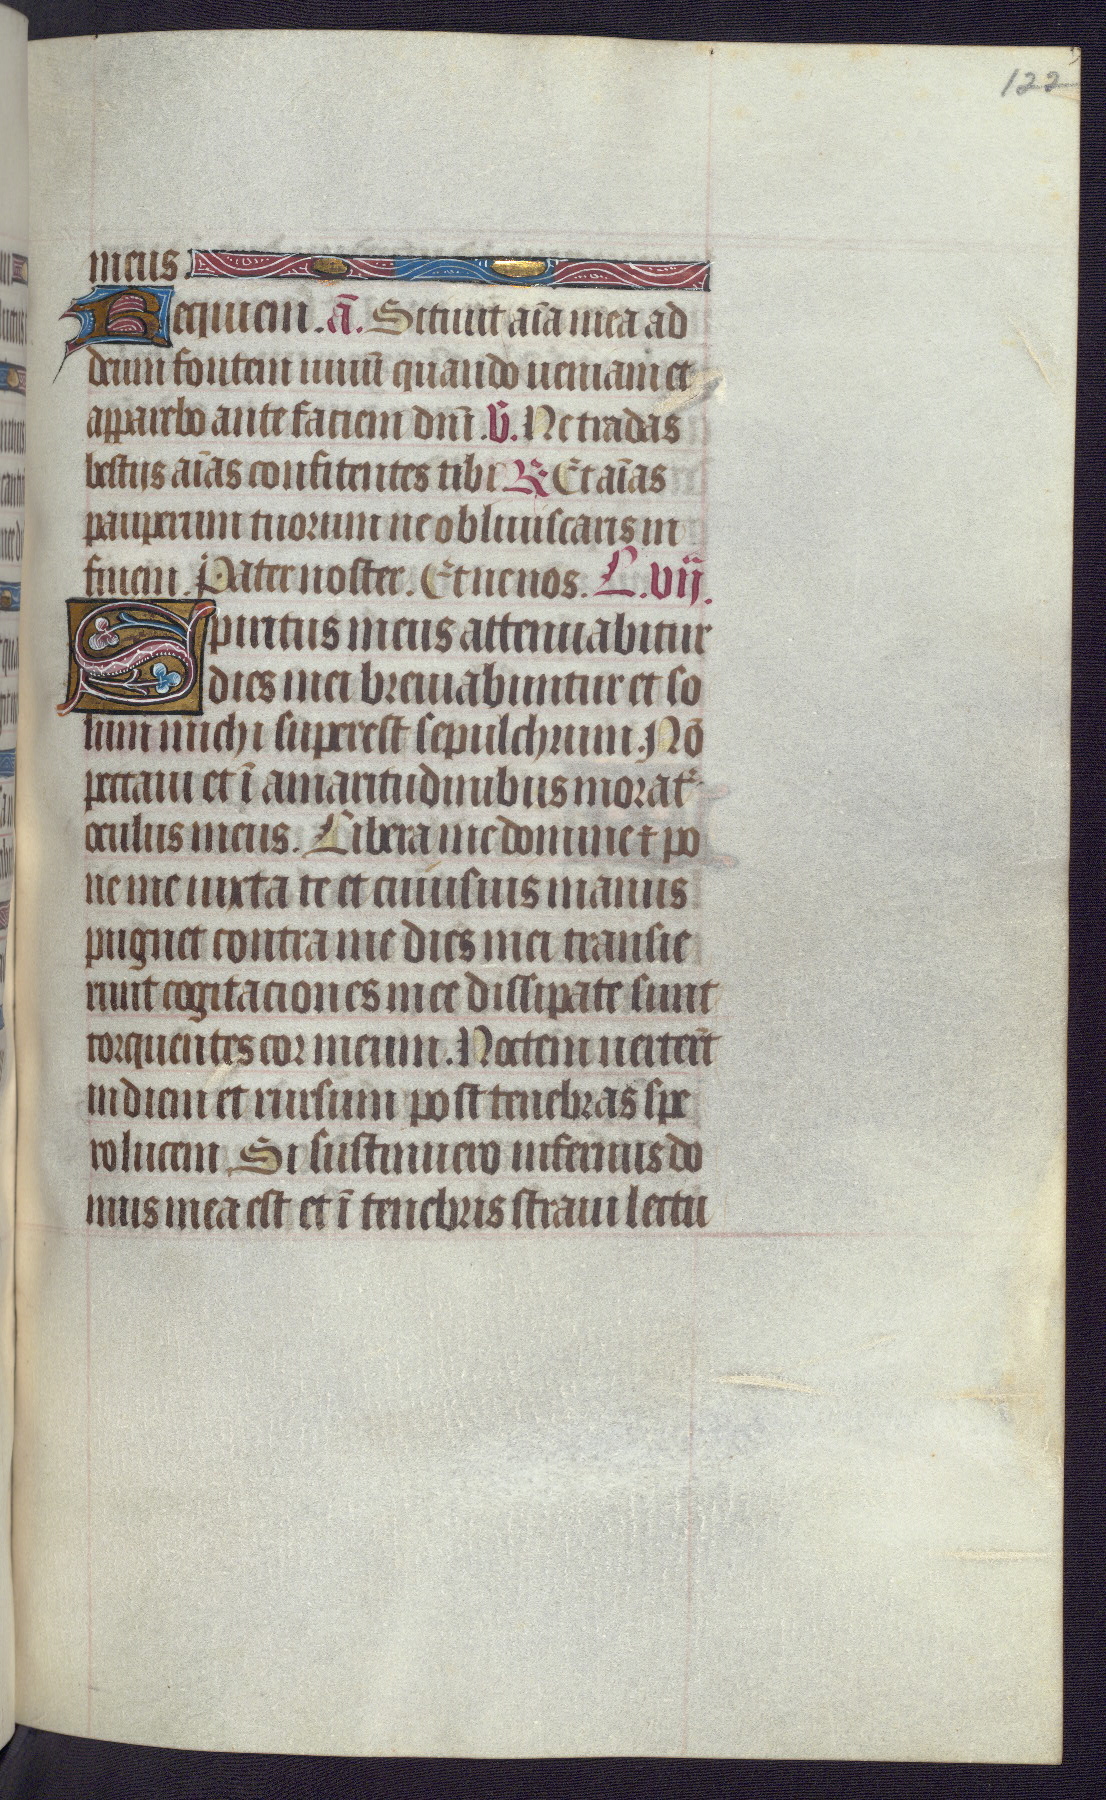 122
meus.
Requiem. ā. Sitiuit aīa mea ad
deum fontem uiuū quando ueniam et
apparebo ante faciem dnī. v̄. Ne tradas
bestiis aīas confitentes tibi R Et aīas
pauperum tuorum ne obliuiscaris in
finem. Pater noster. Et ne nos. L. vij.
Spiritus meus attenuabitur
dies mei breuiabuntur et so
lum michi superest sepulchrum. Nō
peccaui et ī amaritudinibus morat᷑
oculus meus. Libera me domine ⁊ po
ne me iuxta te et cuiusuis manus
pugnet contra me dies mei transie
runt cogitaciones mee dissipate sunt
torquentes cor meum. Noctem uerterūt
in diem et rursum post tenebras spe
ro lucem Si sustinuero infernus do
mus mea est et ī tenebris straui lectu